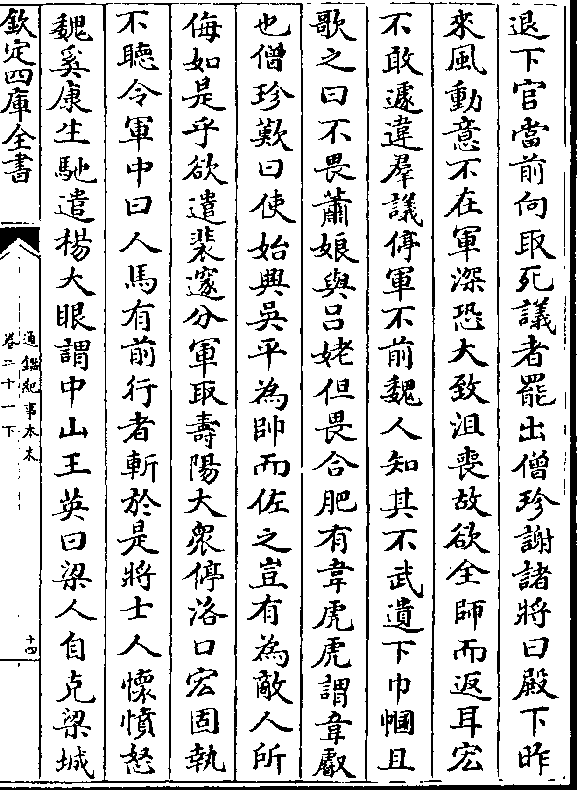 退下官當前向取死議者罷出僧珍謝諸將曰殿下昨
來風動意不在軍深恐大致沮喪故欲全師而返耳宏
不敢遽違羣議停軍不前魏人知其不武遺下巾幗且
歌之曰不畏蕭娘與呂姥但畏合肥有韋虎虎謂韋叡
也僧珍歎曰使始興吳平為帥而佐之豈有為敵人所
侮如是乎欲遣裴邃分軍取壽陽大衆停洛口宏固執
不聽令軍中曰人馬有前行者斬於是將士人懷憤怒
魏奚康生馳遣楊大眼謂中山王英曰梁人自克梁城
欽定四庫全書
通鑑紀事本末
卷二十一下
十四